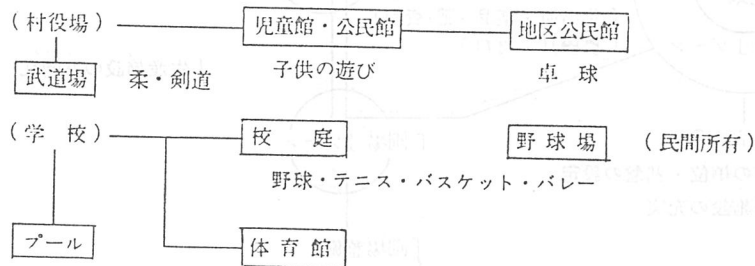 (村役場) 児童館・公民館 地区公民館
武道場 柔・剣道 子供の遊び 卓球
(学校) 校庭 野球場 (民間所有)
野球・テニス・バスケット・バレー
プール 体育館